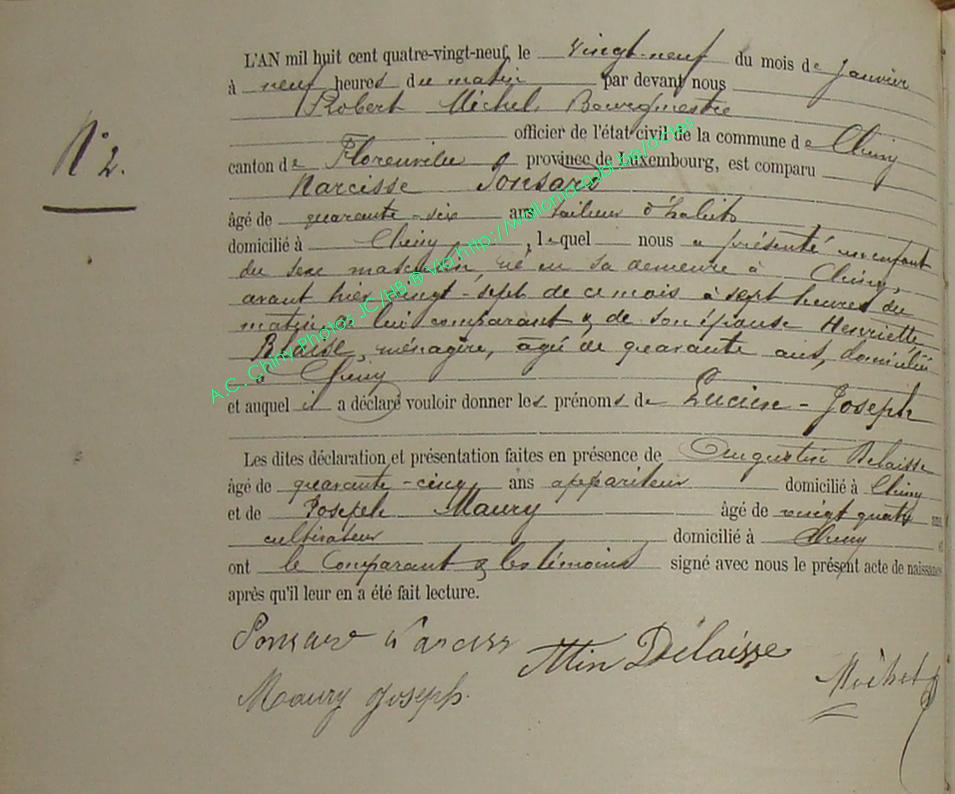 L'AN mil huit cent quatre-vingt-neuf, le vingt-neuf du mois de Janvier
à neuf heures du matin par devant nous
Robert Michel, Bourgmestre
officier de l'état civil de la commune de Chiny
canton de Florenville province de Luxembourg, est comparu
N° 2.
Narcisse Ponsard
âgé de quarante-six ans tailleur d'habits
domicilié à Chiny, lequel nous a présenté un enfant
du sexe masculin, né en sa demeure à Chiny,
avant hier vingt-sept de ce mois à sept heures du
matin, de lui comparant & de son épouse Henriette
Blaise, ménagère, agée de quarante ans, domiciliée
à Chiny
et auquel il a déclaré vouloir donner les prénoms de Lucien-Joseph
Les dites déclaration et présentation faites en présence de Augustin Delaisse
âgé de quarante-cinq ans appariteur domicilié à Chiny
et de Joseph Maury âgé de vingt quatre ans
cultivateur domicilié à Chiny et
ont le Comparant & les témoins signé avec nous le présent acte de naissance
après qu'il leur en a été fait lecture.
Ponsard Narcisse
Delaisse
Michel
Maury Joseph.
A.C. Chiny Photos JC/HB ® via http://wallonica.qbi.be/deles